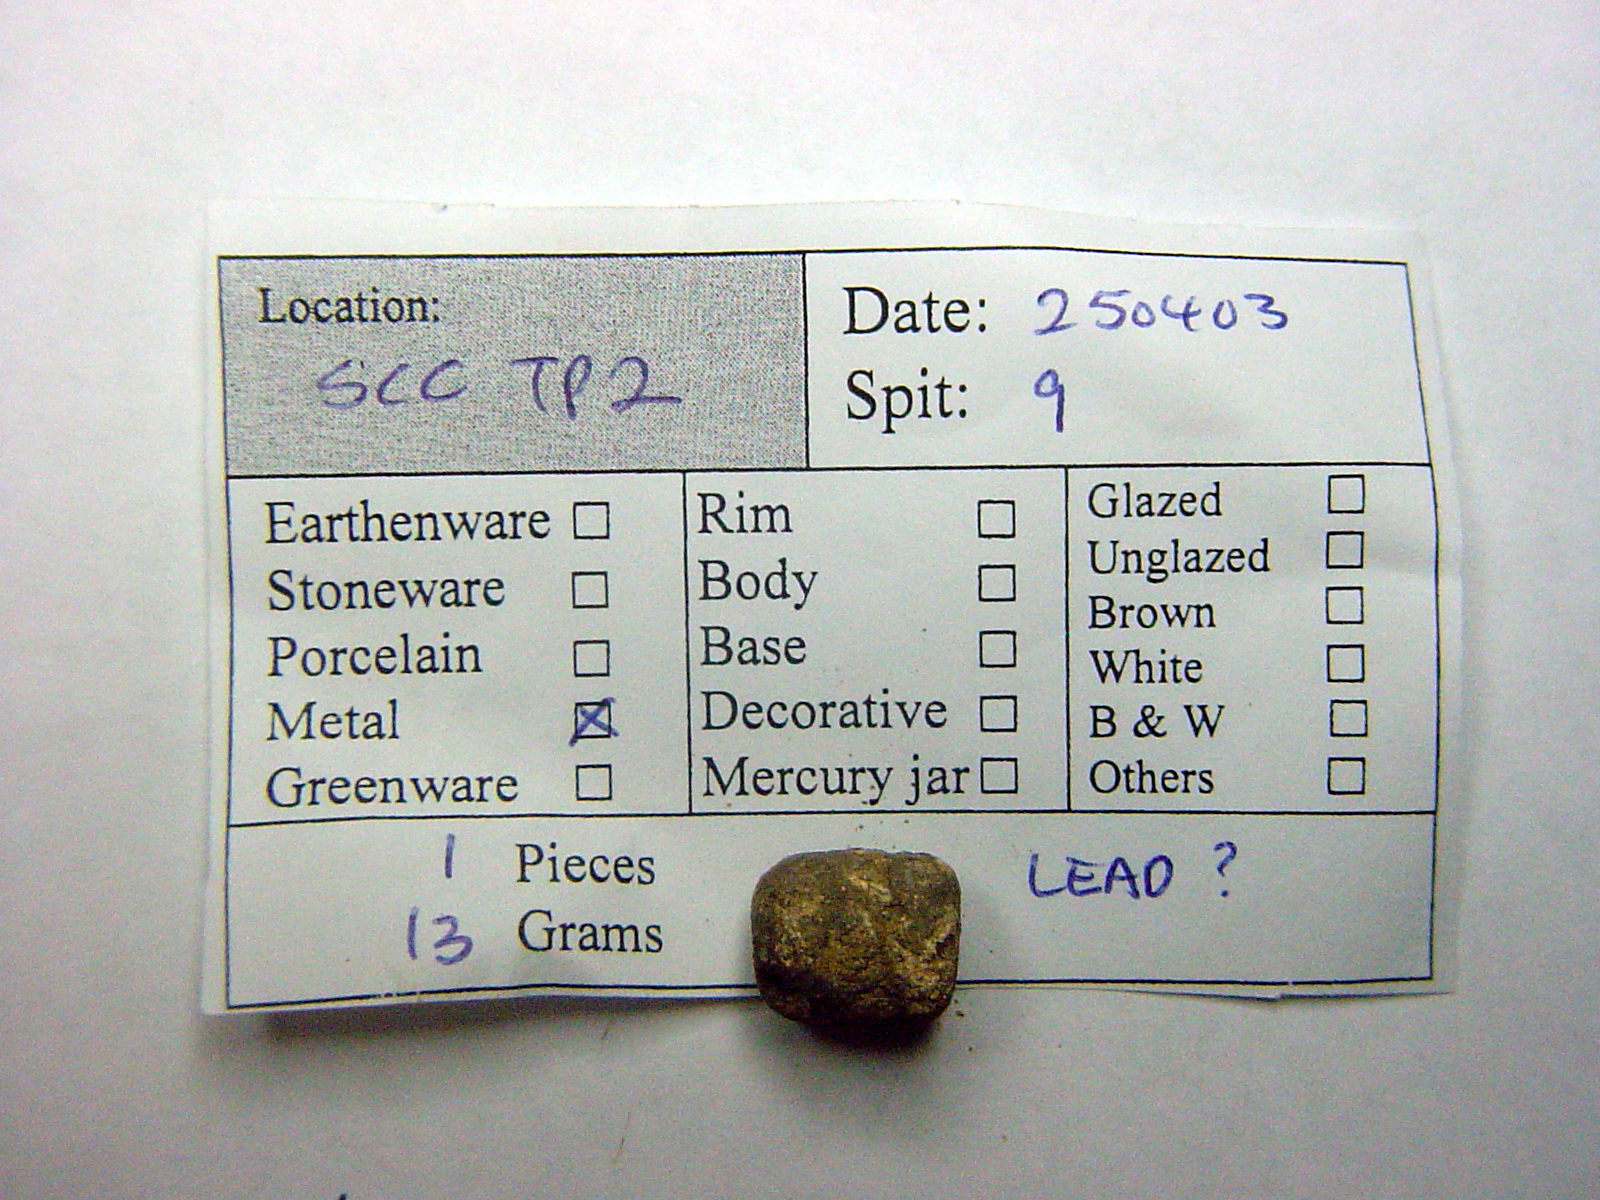 Location:
SCC TP2
Date: 250403
Spit: 9
Earthenware
Stoneware
Porcelain
Metal
Greenware
Rim
Body
Base
Decorative
Mercury jar
Glazed
Unglazed
Brown
White
B & W
Others
1 Pieces
13 Grams
LEAD ?